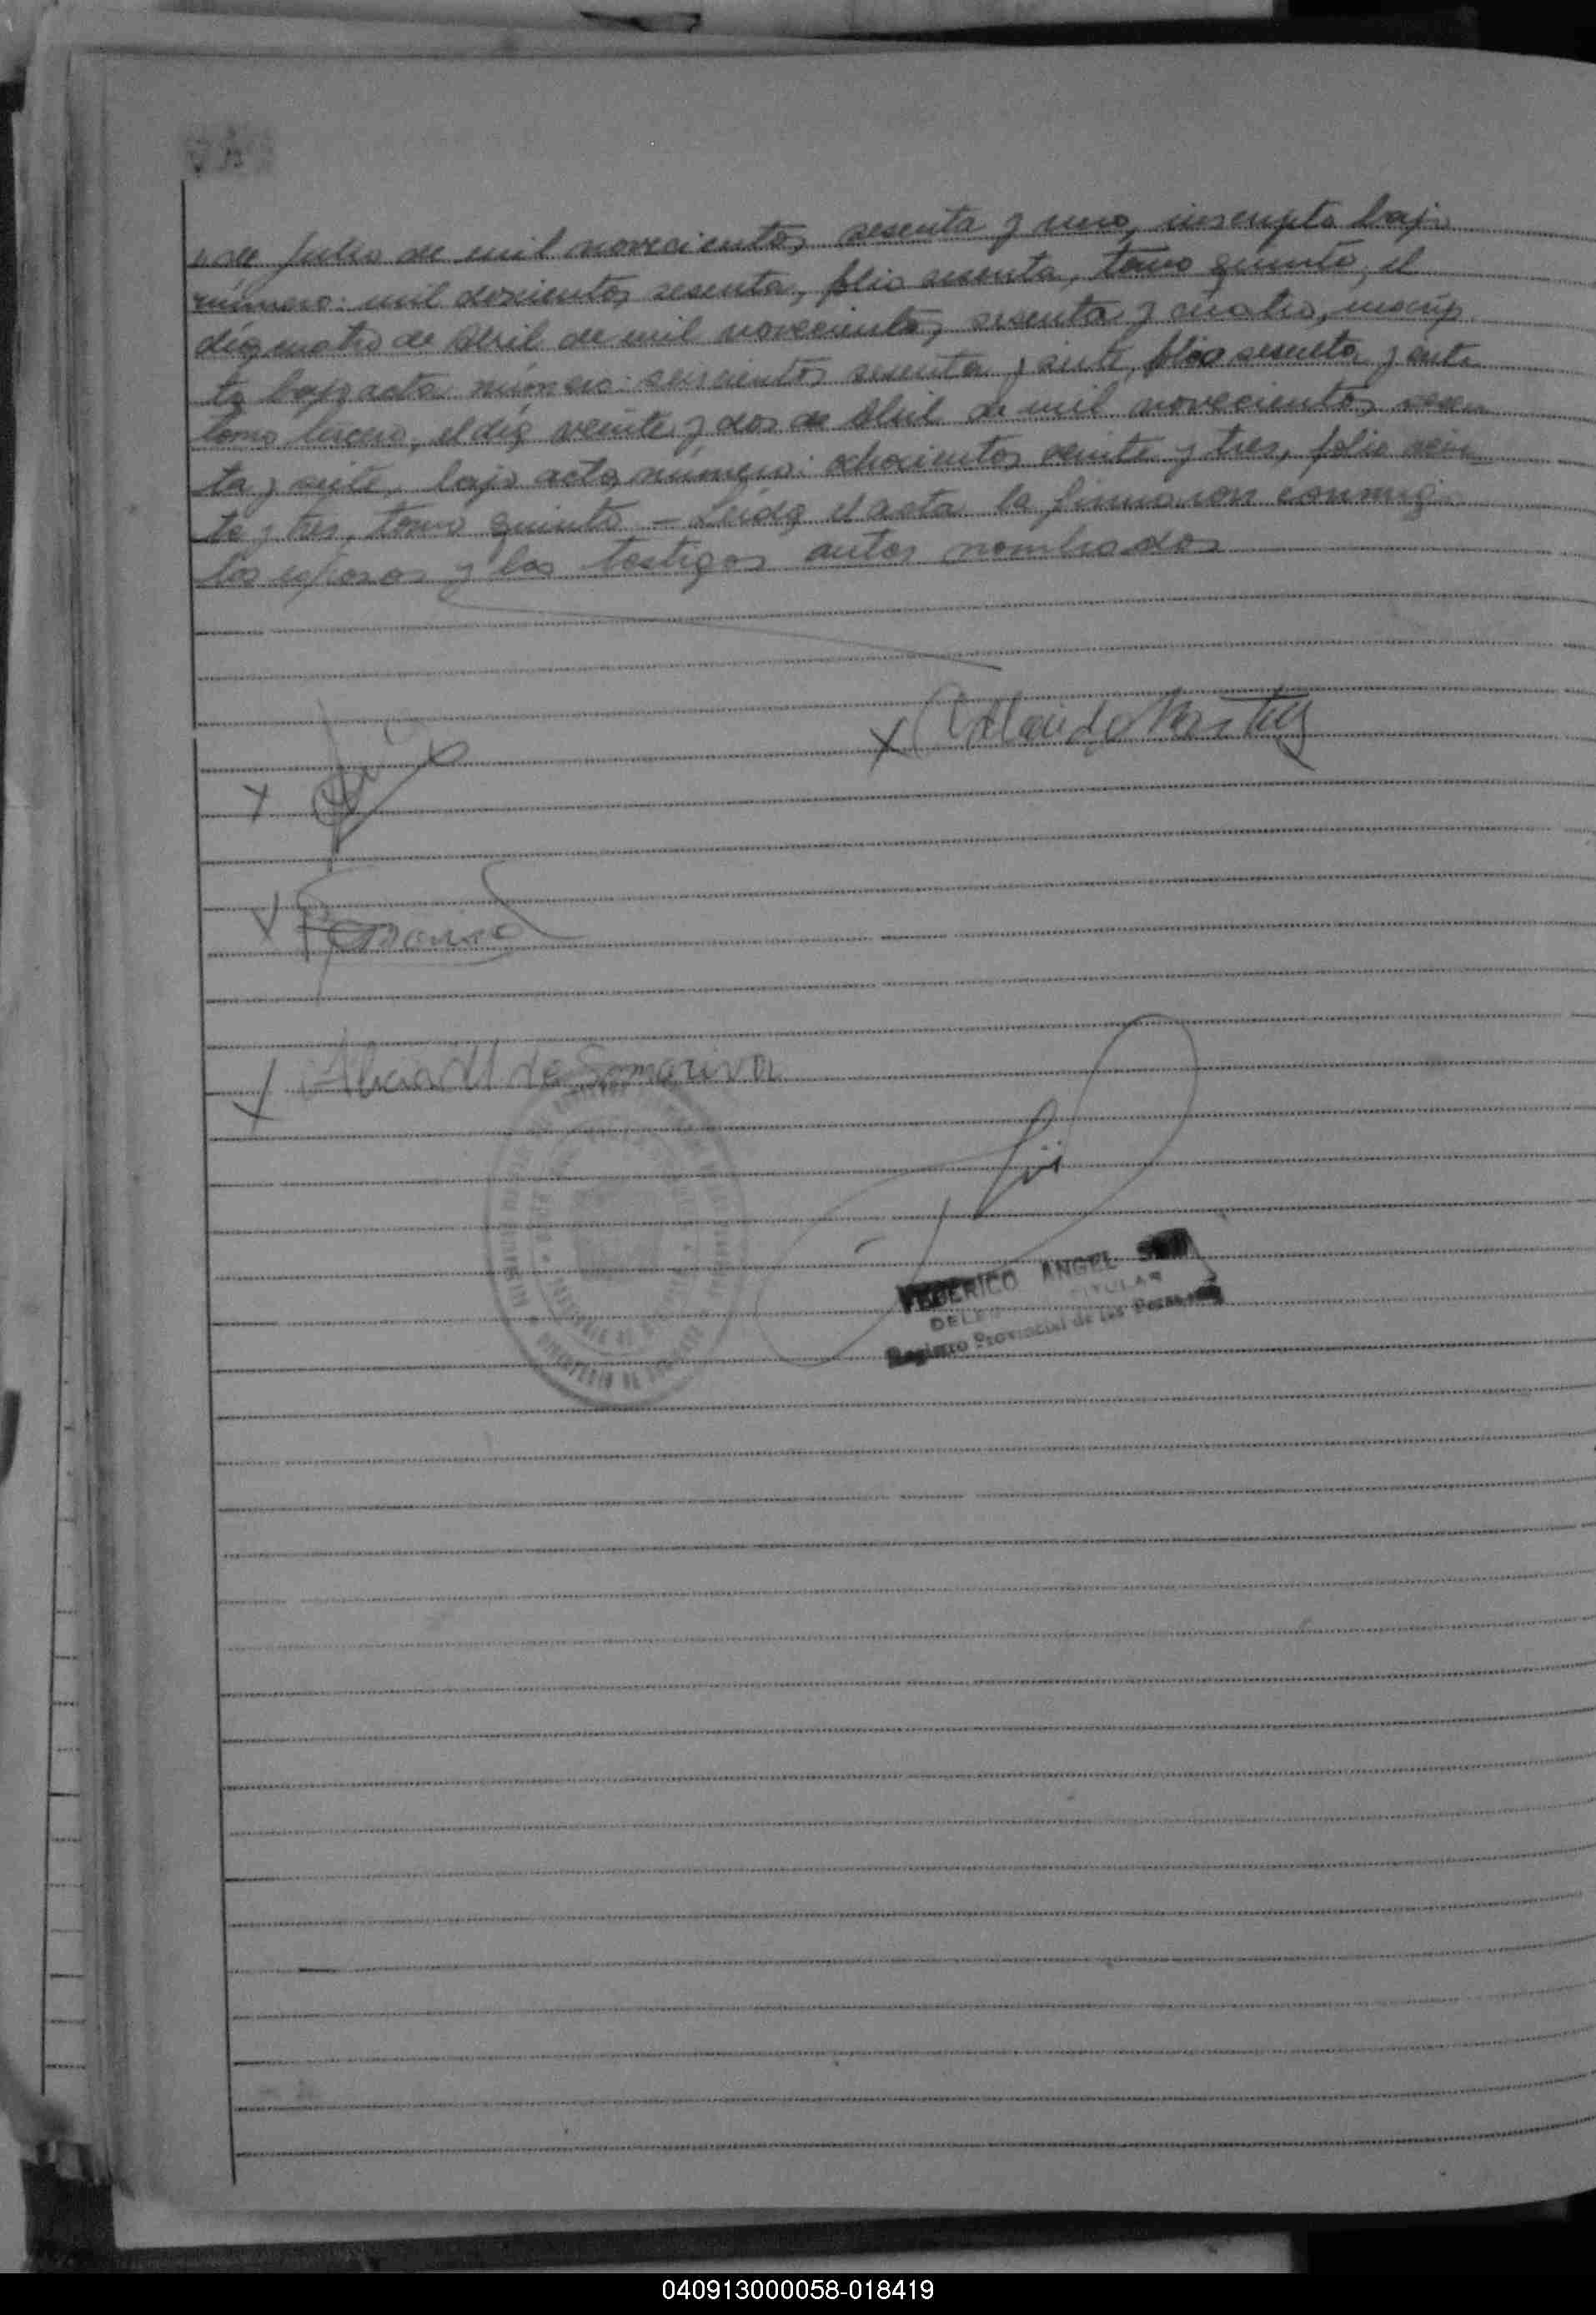 de Julio de mil novecientos sesenta y uno, inscripta bajo
número: mil doscientos sesenta, folio sesenta, tomo quinto, el
día cuatro de Abril de mil novecientos sesenta y cuatro, inscrip
ta bajo acta número: seiscientos sesenta y siete, folio sesenta y siete
tomo tercero, el día veinte y dos de Abril de mil novecientos sesen
ta y siete, bajo acta número: ochocientos veinte y tres, folio vein
te y tres, tomo quinto — Leída el acta la firmaron conmigo
los esposos y los testigos antes nombrados
X
X
Alicia M de Somariva
FEDERICO ANGEL
TITULAR
Registro Provincial de las Personas
040913000058-018419